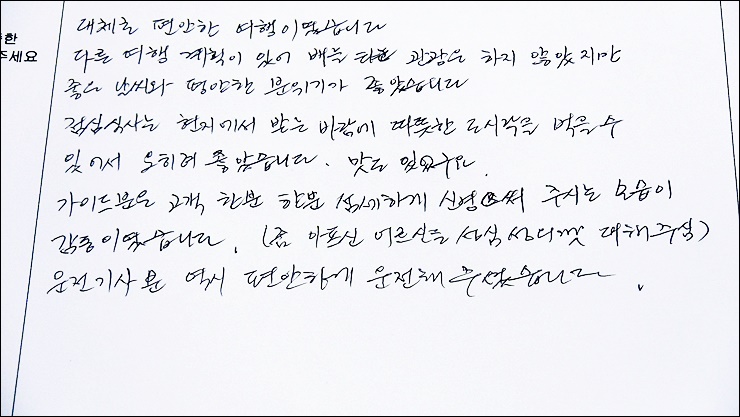 한
주세요
대체로 편안한 여행이었습니다
다른 여행 계획이 있어 배는 관광은 하지 않았지만
좋은 날씨와 편안한 분위기가 좋았습니다
점심식사는 현지에서 받는 바람에 따뜻한 도시락을 먹을 수
있어서 오히려 좋았습니다. 맛도 있었구요.
가이드분은 고객 한분 한분 섬세하게 신경써 주시는 모습이
감동이었습니다. (좀 아프신 어르신을 성심 성의껏 대해주심)
운전기사분 역시 편안하게 운전해 주셨습니다.